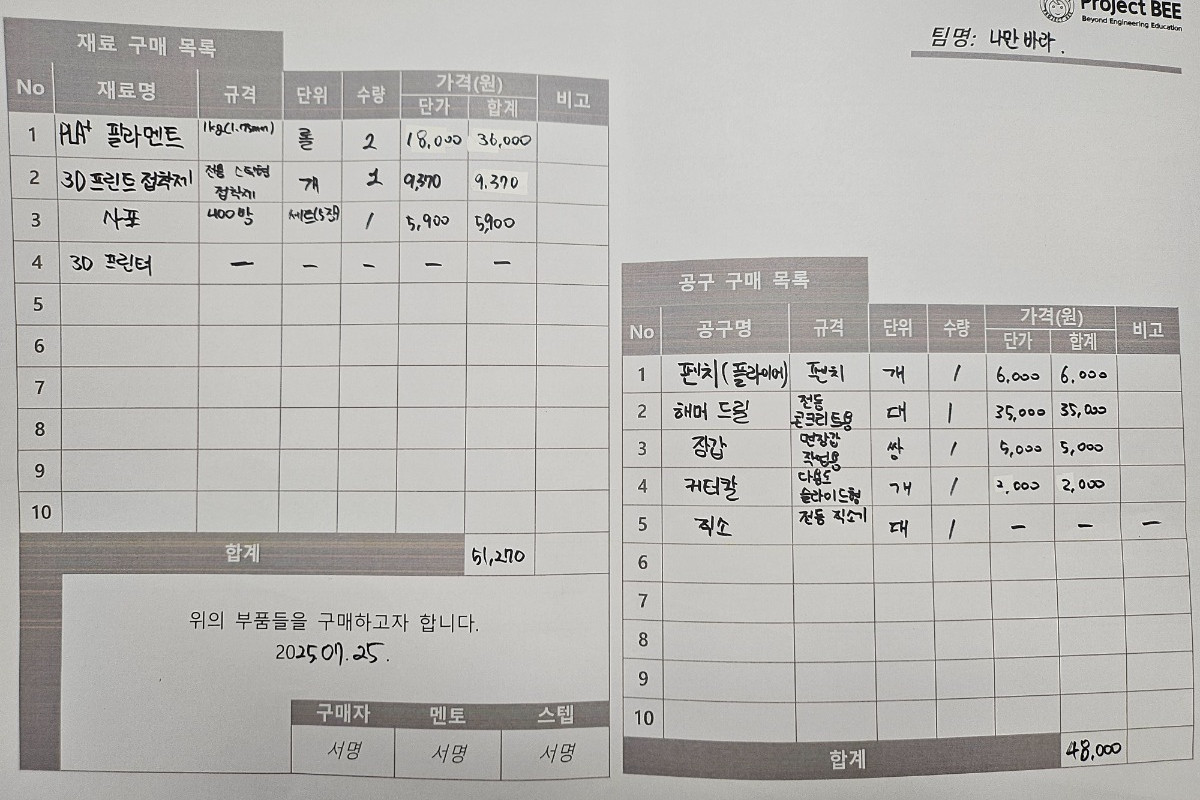 Project BEE
Beyond Engineering Education
팀명: 나만 바라.
재료 구매 목록
No 재료명 규격 단위 수량 가격(원) 비고
단가 합계
1 PLA+ 필라멘트 1kg(1.75mm) 롤 2 18,000 36,000
2 3D프린트 접착제 전용 스틱형 접착제 개 1 9,370 9,370
3 사포 400방 세트(5장) 1 5,900 5,900
4 3D 프린터 - - - - -
5
6
7
8
9
10
합계 51,270
위의 부품들을 구매하고자 합니다.
2025.07.25.
구매자 멘토 스텝
서명 서명 서명
공구 구매 목록
No 공구명 규격 단위 수량 가격(원) 비고
단가 합계
1 펜치(플라이어) 펜치 개 1 6,000 6,000
2 해머 드릴 전동 콘크리트용 대 1 35,000 35,000
3 장갑 면장갑 작업용 쌍 1 5,000 5,000
4 커터칼 다용도 슬라이드형 개 1 2,000 2,000
5 직소 전동 직소기 대 1 - - -
6
7
8
9
10
합계 48,000